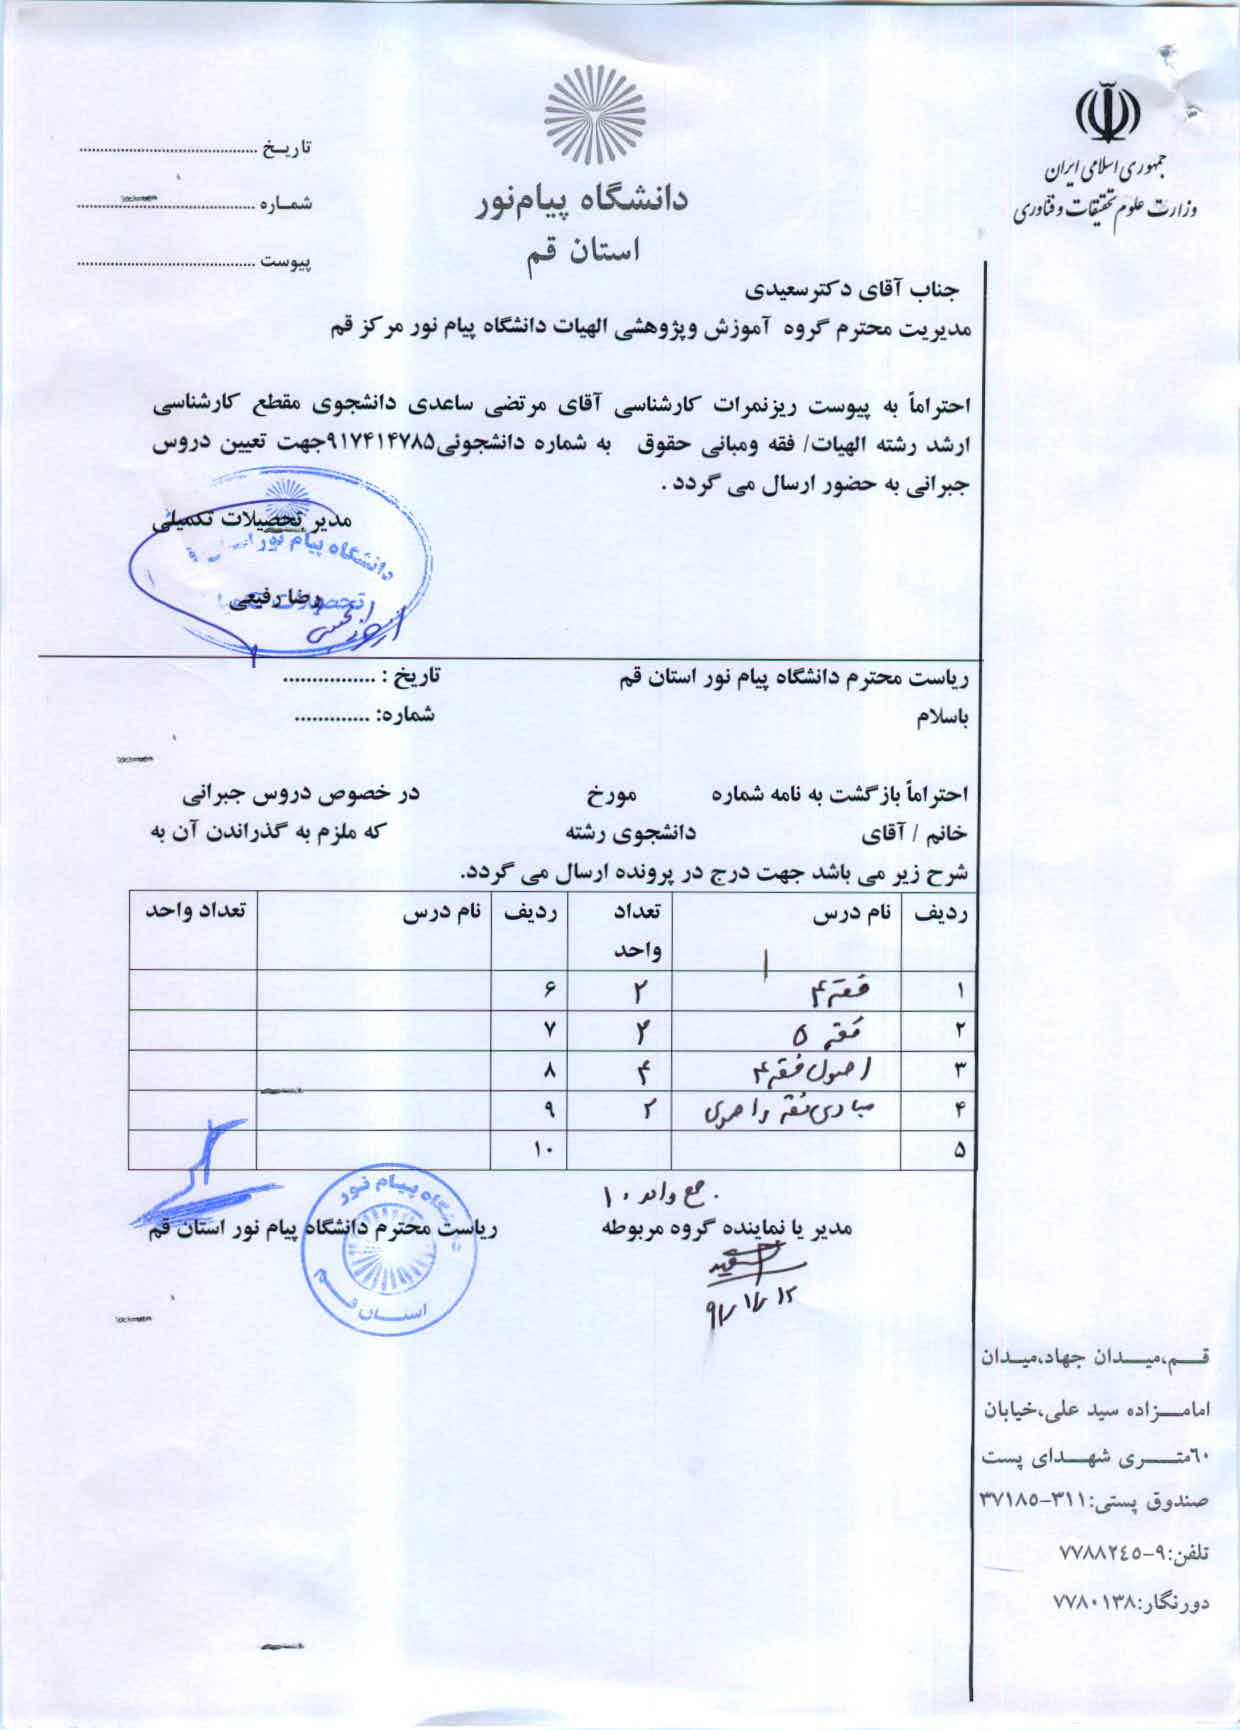 جمهوری اسلامی ایران
وزارت علوم تحقیقات و فناوری
دانشگاه پیام‌نور
استان قم
تاریـخ ......................................
شمـاره ......................................
پیوست ......................................
جناب آقای دکترسعیدی
مدیریت محترم گروه آموزش وپژوهشی الهیات دانشگاه پیام نور مرکز قم
احتراماً به پیوست ریزنمرات کارشناسی آقای مرتضی ساعدی دانشجوی مقطع کارشناسی
ارشد رشته الهیات/ فقه ومبانی حقوق به شماره دانشجوئی۹۱۷۴۱۴۷۸۵جهت تعیین دروس
جبرانی به حضور ارسال می گردد .
مدیر تحصیلات تکمیلی
دانشگاه پیام نور استان قم
رضا رفیعی
ریاست محترم دانشگاه پیام نور استان قم تاریخ : ................
باسلام شماره: .............
احتراماً بازگشت به نامه شماره مورخ در خصوص دروس جبرانی
خانم / آقای دانشجوی رشته که ملزم به گذراندن آن به
شرح زیر می باشد جهت درج در پرونده ارسال می گردد.
ردیف نام درس تعداد واحد ردیف نام درس تعداد واحد
۱ فقه ۴ ۲ ۶
۲ فقه ۵ ۲ ۷
۳ اصول فقه ۴ ۴ ۸
۴ مبادی فقه و اصول ۲ ۹
۵ ۱۰
جمع واحد ۱۰
مدیر یا نماینده گروه مربوطه ریاست محترم دانشگاه پیام نور استان قم
دانشگاه پیام نور
استان قم
۹۱/۱۲/۱۲
قــم،میــدان جهاد،میدان
امامــزاده سید علی،خیابان
٦٠متــری شهــدای پست
صندوق پستی:٣١١-٣٧١٨٥
تلفن:٩-٧٧٨٨٢٤٥
دورنگار:٧٧٨٠١٣٨